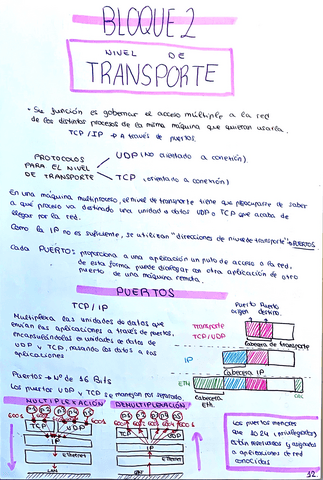 BLOQUE 2
NIVEL DE
TRANSPORTE
• Su función es gobernar el acceso múltiple a la red
de los distintos procesos de la misma máquina que quieran usarla.
TCP/IP → A través de puertos.
PROTOCOLOS
PARA EL NIVEL
DE TRANSPORTE
UDP (No orientado a conexión)
TCP (orientado a conexión)
En una máquina multiproceso, el nivel de transporte tiene que preocuparse de saber
a qué proceso va destinado una unidad de datos UDP o TCP que acaba de
llegar por la red.
Como la IP no es suficiente, se utilizan "direcciones de nivel de transporte" → PUERTOS
Cada PUERTO: proporciona a una aplicación un punto de acceso a la red.
de esta forma puede dialogar con otra aplicación de otro
puerto de una máquina remota.
PUERTOS
TCP/IP
Multiplexa las unidades de datos que
envían las aplicaciones a través de puertos.
encapsulándolas en unidades de datos de
UDP y TCP, pasando los datos a las
aplicaciones
Puerto origen
Puerto destino.
Transporte
TCP/UDP
Cabecera de transporte
IP
Cabecera IP
ETH
CRC
Cabecera
ETH.
Puertos → Nº de 16 Bits
Los puertos UDP y TCP se manejan por separado
MULTIPLEXACIÓN
DEMULTIPLEXACIÓN
TCP
UDP
IP
ETHERNET
LAN
TCP
UDP
IP
ETHERNET
LAN
Los puertos menores
que 1024 (privilegiados)
están reservados y asignados
a aplicaciones de red
conocidas
12